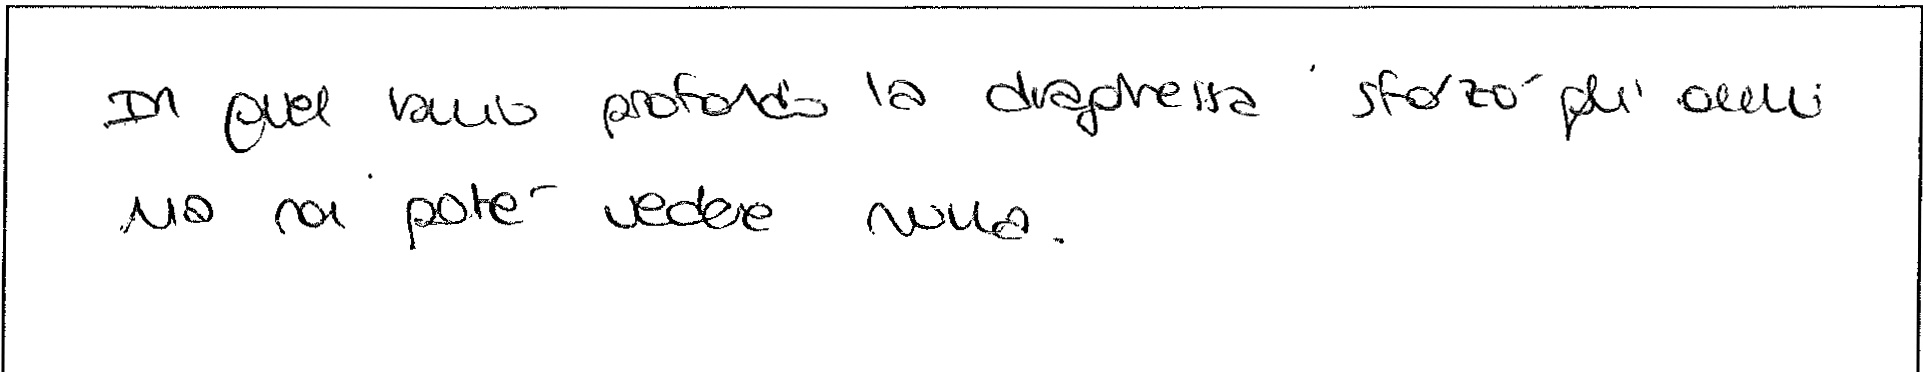 In quel profondo la draghessa sforzò gli occhi
ma non poté vedere nulla.